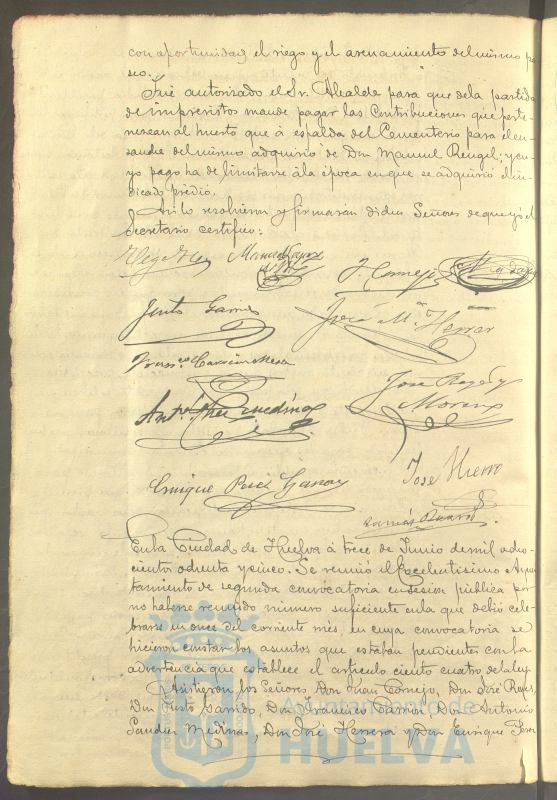 con oportunidad el riego y el arenamiento del mismo pa
seo.
Fué autorizado el Sr. Alcalde para que de la partida
de imprevistos mande pagar las Contribuciones que perte-
nezcan al huerto que á espalda del Cementerio para el en-
sanche del mismo adquirió de Don Manuel Rengel; y cu-
yo pago ha de limitarse á la época en que se adquirió el in-
dicado prédio.
Asi lo resolvieron y firmarán dichos Señores de que yo el
Secretario certifico:
J. Cornejo
Justo Garrido
José Ma. Herrer
Franco. Carrión Mesa
José
Moreno
Enrique Perez
José Hierro
En la Ciudad de Huelva á trece de Junio de mil ocho-
cientos ochenta y cinco. Se reunió el Excelentisimo Ayun-
tamiento de segunda convocatoria en sesion pública por
no haberse reunido número suficiente en la que debió cele-
brarse en once del corriente mes, en cuya convocatoria se
hicieron constar los asuntos que estaban pendientes con la
advertencia que establece el articulo ciento cuatro de la ley.
Asistieron los Señores Don Juan Cornejo, Don José Reyes,
Don Justo Garrido, Don Francisco Carrion, Don Antonio
Sanchez Medina, Don José Herrera y Don Enrique Perez
Ayuntamiento de
HUELVA